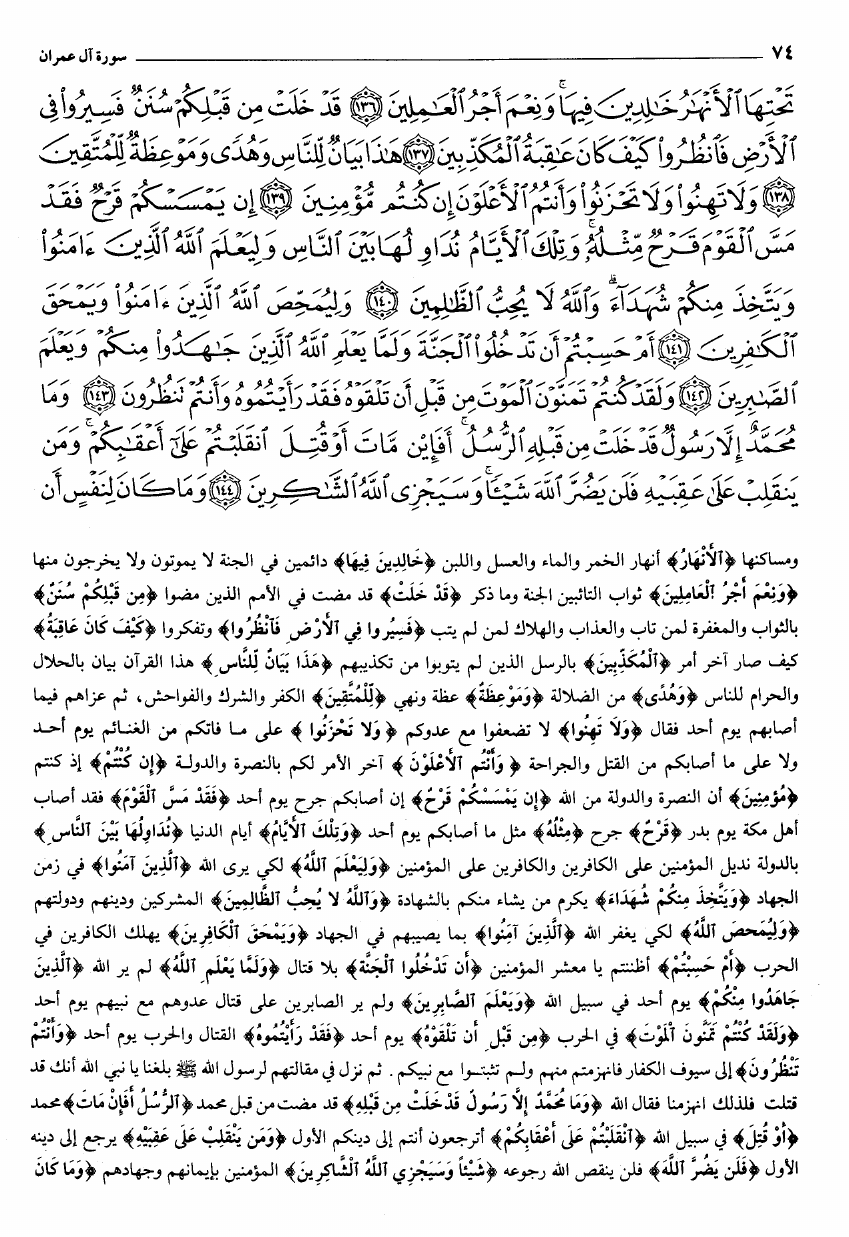 ٧٤ سورة آل عمران
تَحْتِهَا ٱلْأَنْهَٰرُ خَٰلِدِينَ فِيهَا ۚ وَنِعْمَ أَجْرُ ٱلْعَٰمِلِينَ ﴿١٣٦﴾ قَدْ خَلَتْ مِن قَبْلِكُمْ سُنَنٌ فَسِيرُوا۟ فِى
ٱلْأَرْضِ فَٱنظُرُوا۟ كَيْفَ كَانَ عَٰقِبَةُ ٱلْمُكَذِّبِينَ ﴿١٣٧﴾ هَٰذَا بَيَانٌ لِّلنَّاسِ وَهُدًى وَمَوْعِظَةٌ لِّلْمُتَّقِينَ
﴿١٣٨﴾ وَلَا تَهِنُوا۟ وَلَا تَحْزَنُوا۟ وَأَنتُمُ ٱلْأَعْلَوْنَ إِن كُنتُم مُّؤْمِنِينَ ﴿١٣٩﴾ إِن يَمْسَسْكُمْ قَرْحٌ فَقَدْ
مَسَّ ٱلْقَوْمَ قَرْحٌ مِّثْلُهُۥ ۚ وَتِلْكَ ٱلْأَيَّامُ نُدَاوِلُهَا بَيْنَ ٱلنَّاسِ وَلِيَعْلَمَ ٱللَّهُ ٱلَّذِينَ ءَامَنُوا۟
وَيَتَّخِذَ مِنكُمْ شُهَدَآءَ ۗ وَٱللَّهُ لَا يُحِبُّ ٱلظَّٰلِمِينَ ﴿١٤٠﴾ وَلِيُمَحِّصَ ٱللَّهُ ٱلَّذِينَ ءَامَنُوا۟ وَيَمْحَقَ
ٱلْكَٰفِرِينَ ﴿١٤١﴾ أَمْ حَسِبْتُمْ أَن تَدْخُلُوا۟ ٱلْجَنَّةَ وَلَمَّا يَعْلَمِ ٱللَّهُ ٱلَّذِينَ جَٰهَدُوا۟ مِنكُمْ وَيَعْلَمَ
ٱلصَّٰبِرِينَ ﴿١٤٢﴾ وَلَقَدْ كُنتُمْ تَمَنَّوْنَ ٱلْمَوْتَ مِن قَبْلِ أَن تَلْقَوْهُ فَقَدْ رَأَيْتُمُوهُ وَأَنتُمْ تَنظُرُونَ ﴿١٤٣﴾ وَمَا
مُحَمَّدٌ إِلَّا رَسُولٌ قَدْ خَلَتْ مِن قَبْلِهِ ٱلرُّسُلُ ۚ أَفَإِي۟ن مَّاتَ أَوْ قُتِلَ ٱنقَلَبْتُمْ عَلَىٰٓ أَعْقَٰبِكُمْ ۚ وَمَن
يَنقَلِبْ عَلَىٰ عَقِبَيْهِ فَلَن يَضُرَّ ٱللَّهَ شَيْـًٔا ۗ وَسَيَجْزِى ٱللَّهُ ٱلشَّٰكِرِينَ ﴿١٤٤﴾ وَمَا كَانَ لِنَفْسٍ أَن
ومساكنها ﴿ٱلْأَنْهَارُ﴾ أنهار الخمر والماء والعسل واللبن ﴿خَالِدِينَ فِيهَا﴾ دائمين في الجنة لا يموتون ولا يخرجون منها
﴿وَنِعْمَ أَجْرُ ٱلْعَامِلِينَ﴾ ثواب التائبين الجنة وما ذكر ﴿قَدْ خَلَتْ﴾ قد مضت في الأمم الذين مضوا ﴿مِن قَبْلِكُمْ سُنَنٌ﴾
بالثواب والمغفرة لمن تاب والعذاب والهلاك لمن لم يتب ﴿فَسِيرُوا فِي ٱلْأَرْضِ فَٱنْظُرُوا﴾ وتفكروا ﴿كَيْفَ كَانَ عَاقِبَةُ﴾
كيف صار آخر أمر ﴿ٱلْمُكَذِّبِينَ﴾ بالرسل الذين لم يتوبوا من تكذيبهم ﴿هَذَا بَيَانٌ لِلنَّاسِ﴾ هذا القرآن بيان بالحلال
والحرام للناس ﴿وَهُدًى﴾ من الضلالة ﴿وَمَوْعِظَةٌ﴾ عظة ونهي ﴿لِلْمُتَّقِينَ﴾ الكفر والشرك والفواحش، ثم عزاهم فيما
أصابهم يوم أحد فقال ﴿وَلَا تَهِنُوا﴾ لا تضعفوا مع عدوكم ﴿وَلَا تَحْزَنُوا﴾ على ما فاتكم من الغنائم يوم أحد
ولا على ما أصابكم من القتل والجراحة ﴿وَأَنْتُمُ ٱلْأَعْلَوْنَ﴾ آخر الأمر لكم بالنصرة والدولة ﴿إِن كُنْتُمْ﴾ إذ كنتم
﴿مُؤْمِنِينَ﴾ أن النصرة والدولة من الله ﴿إِن يَمْسَسْكُمْ قَرْحٌ﴾ إن أصابكم جرح يوم أحد ﴿فَقَدْ مَسَّ ٱلْقَوْمَ﴾ فقد أصاب
أهل مكة يوم بدر ﴿قَرْحٌ﴾ جرح ﴿مِثْلُهُ﴾ مثل ما أصابكم يوم أحد ﴿وَتِلْكَ ٱلْأَيَّامُ﴾ أيام الدنيا ﴿نُدَاوِلُهَا بَيْنَ ٱلنَّاسِ﴾
بالدولة نديل المؤمنين على الكافرين والكافرين على المؤمنين ﴿وَلِيَعْلَمَ ٱللَّهُ﴾ لكي يرى الله ﴿ٱلَّذِينَ آمَنُوا﴾ في زمن
الجهاد ﴿وَيَتَّخِذَ مِنْكُمْ شُهَدَاءَ﴾ يكرم من يشاء منكم بالشهادة ﴿وَٱللَّهُ لَا يُحِبُّ ٱلظَّالِمِينَ﴾ المشركين ودينهم ودولتهم
﴿وَلِيُمَحِّصَ ٱللَّهُ﴾ لكي يغفر الله ﴿ٱلَّذِينَ آمَنُوا﴾ بما يصيبهم في الجهاد ﴿وَيَمْحَقَ ٱلْكَافِرِينَ﴾ يهلك الكافرين في
الحرب ﴿أَمْ حَسِبْتُمْ﴾ أظننتم يا معشر المؤمنين ﴿أَن تَدْخُلُوا ٱلْجَنَّةَ﴾ بلا قتال ﴿وَلَمَّا يَعْلَمِ ٱللَّهُ﴾ لم ير الله ﴿ٱلَّذِينَ
جَاهَدُوا مِنْكُمْ﴾ يوم أحد في سبيل الله ﴿وَيَعْلَمَ ٱلصَّابِرِينَ﴾ ولم ير الصابرين على قتال عدوهم مع نبيهم يوم أحد
﴿وَلَقَدْ كُنْتُمْ تَمَنَّوْنَ ٱلْمَوْتَ﴾ في الحرب ﴿مِن قَبْلِ أَن تَلْقَوْهُ﴾ يوم أحد ﴿فَقَدْ رَأَيْتُمُوهُ﴾ القتال والحرب يوم أحد ﴿وَأَنْتُمْ
تَنْظُرُونَ﴾ إلى سيوف الكفار فانهزمتم منهم ولم تثبتوا مع نبيكم. ثم نزل في مقالتهم لرسول الله ﷺ بلغنا يا نبي الله أنك قد
قتلت فلذلك انهزمنا فقال الله ﴿وَمَا مُحَمَّدٌ إِلَّا رَسُولٌ قَدْ خَلَتْ مِن قَبْلِهِ﴾ قد مضت من قبل محمد ﴿ٱلرُّسُلُ أَفَإِنْ مَاتَ﴾ محمد
﴿أَوْ قُتِلَ﴾ في سبيل الله ﴿ٱنْقَلَبْتُمْ عَلَى أَعْقَابِكُمْ﴾ أترجعون أنتم إلى دينكم الأول ﴿وَمَن يَنْقَلِبْ عَلَى عَقِبَيْهِ﴾ يرجع إلى دينه
الأول ﴿فَلَن يَضُرَّ ٱللَّهَ﴾ فلن ينقص الله رجوعه ﴿شَيْئاً وَسَيَجْزِي ٱللَّهُ ٱلشَّاكِرِينَ﴾ المؤمنين بإيمانهم وجهادهم ﴿وَمَا كَانَ